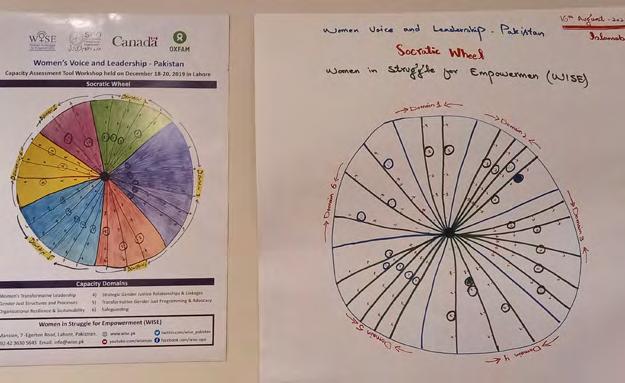 WISE
Canada
OXFAM
Women's Voice and Leadership - Pakistan
Capacity Assessment Tool Workshop held on December 18-20, 2019 in Lahore
Socratic Wheel
Capacity Domains
Women's Transformative Leadership
Gender Just Structures and Processes
Organizational Resilience & Sustainability
4) Strategic Gender Justice Relationships & Linkages
5) Transformative Gender Just Programming & Advocacy
6) Safeguarding
Women in Struggle for Empowerment (WISE)
Mansion, 7-Egerton Road, Lahore, Pakistan.
www.wise.pk
twitter.com/wise_pakistan
Email: info@wise.pk
16th August
Women Voice and Leadership - Pakistan
Socratic Wheel
Women in struggle for Empowermen (WISE)
Domain 1
Domain 2
Domain 3
Domain 4
Domain 5
Domain 6